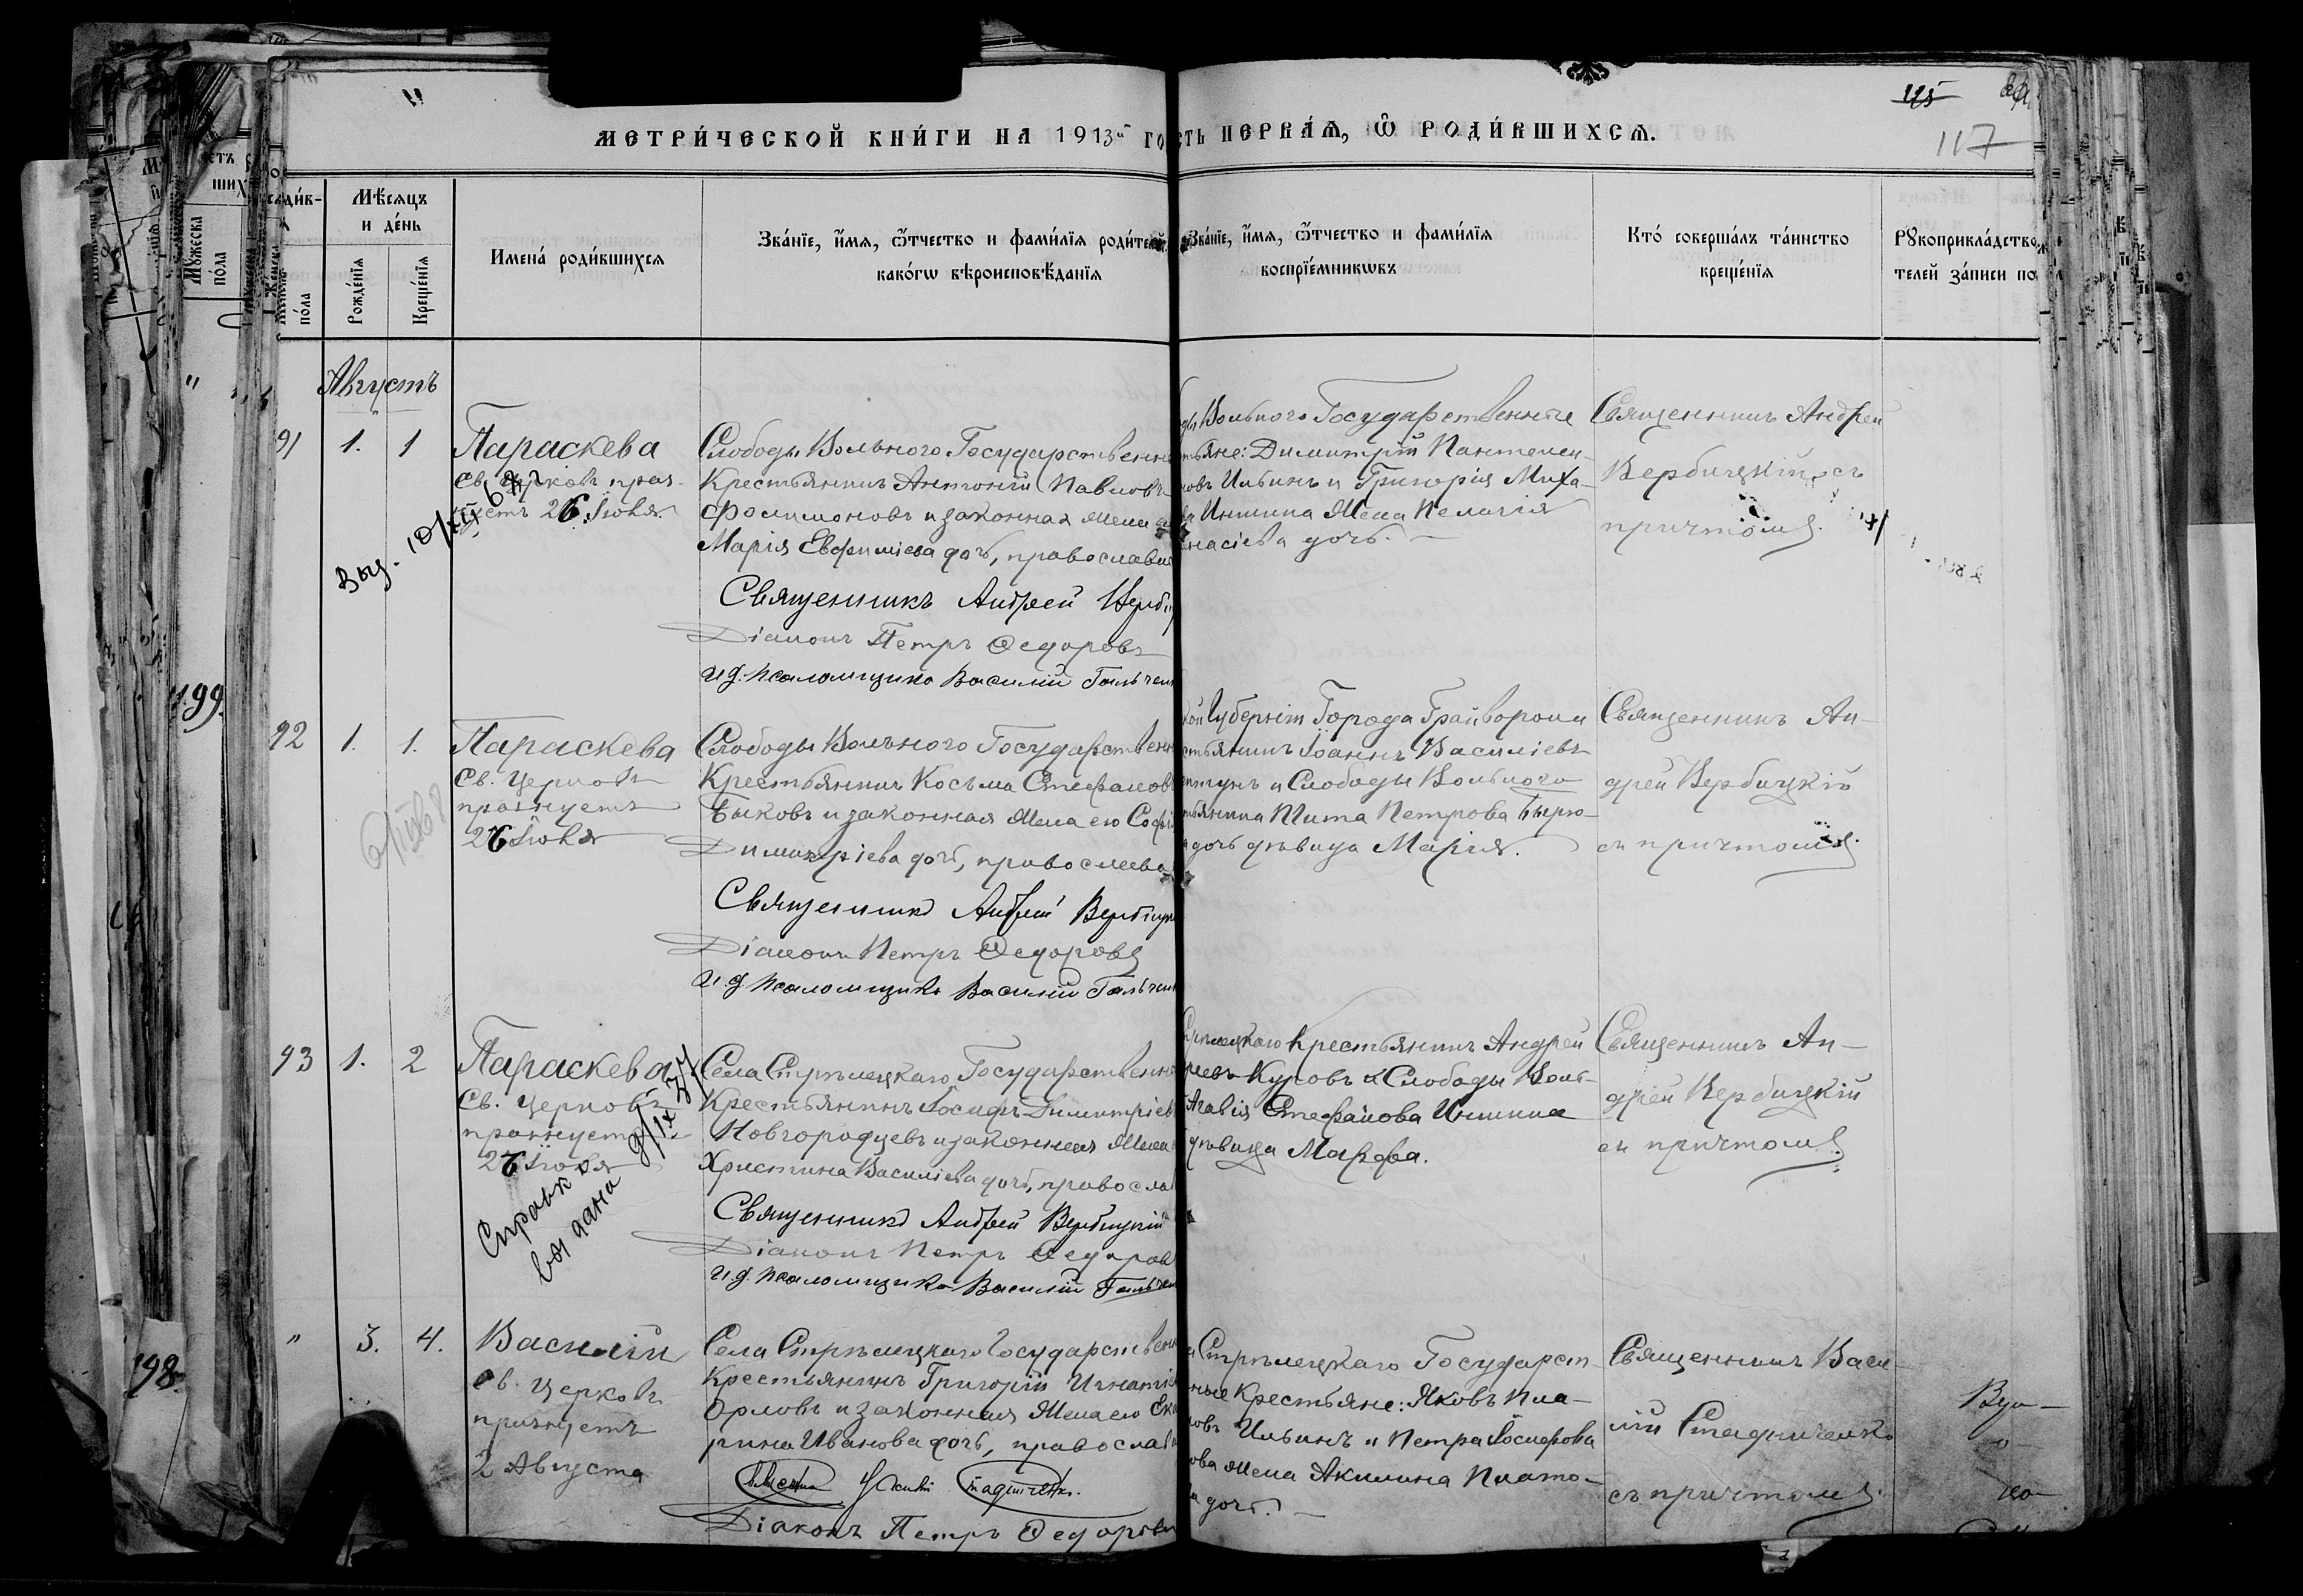 метри́ческой кни́ги на 1913й го
сть пе́рваѧ, ѡ҆ роди́вшихсѧ.
115
117
Мѣ́сяцъ
и де́нь
Рожде́нїя
Креще́нїя
по́ла
Имена́ роди́вшихся
Зва́нїе, и҆́мя, ѻ҆́тчество и фами́лїя роди́телей,
како́гѡ вѣроисповѣ́данїя
Зва́нїе, и҆́мя, ѻ҆́тчество и фами́лїя
воспрїе́мникѡвъ
Кто́ соверша́лъ та́инство
креще́нїя
Рꙋкоприкла́дство
телей за́писи по
Августъ
91 1. 1
Параскева
Св. Церковь праз-
нуетъ 26 Іюля
Выд. 10/XII 67 г
Слободы Вольного Государственн
Крестьянинъ Антоній Павловъ
Филимоновъ и законная жена
Марія Евфиміева дочь, православн
Священникъ Андрей Верби
Діаконъ Петръ Ѳедоровъ
И.д. псаломщика Василій Гальчен
ды Вольного Государственные
тьяне: Димитрій Пантелеи-
новъ Ильинъ и Григорія Миха-
ва Иншина жена Пелагія
насіева дочь.
Священникъ Андрей
Вербицкій съ
причтомъ.
92 1. 1.
Параскева
Св. Церковь
празнуетъ
26 Іюля
Слободы Вольного Государственн
Крестьянинъ Косьма Стефановъ
Быковъ и законная жена его Софі
Димитріева дочь, православ
Священникъ Андрей Вербицк
Діаконъ Петръ Ѳедоровъ
И.д. псаломщика Василій Гальчен
кой Губерніи Города Грайворона
стьянинъ Іоаннъ Василіевъ
и Слободы Вольного
тьянина Тита Петрова Бырю-
дочь дѣвица Марія.
Священникъ Ан-
дрей Вербицкій
съ причтомъ.
93 1. 2
Параскева
Св. Церковь
празнуетъ
26 Іюля
Справка
выдана 9/IX 37
Села Стрѣлецкаго Государственн
Крестьянинъ Іосифъ Димитріев
Новгородцевъ и законная жена
Христина Василіева дочь, правосла
Священникъ Андрей Вербицкій
Діаконъ Петръ Ѳедоров
И.д. псаломщика Василій Гальчен
Стрѣлецкаго Крестьянинъ Андрей
реевъ Куровъ и Слободы Воль-
Стефанова Иншина
дѣвица Марѳа.
Священникъ Ан-
дрей Вербицкій
съ причтомъ.
" 3. 4.
Василій
Св. Церковь
празнуетъ
2 Августа
Села Стрѣлецкаго Государственн
Крестьянинъ Григорій Игнатіев
Орловъ и законная жена его Ека
рина Иванова дочь, православ
Діаконъ Петръ Ѳедоровъ
Стрѣлецкаго Государст-
ные Крестьяне: Яковъ Пла-
новъ Ильинъ и Петра Іосифова
ова жена Акилина Плато-
а дочь.
Священникъ Васи-
лій Стадниченко
съ причтомъ.
199.
198.